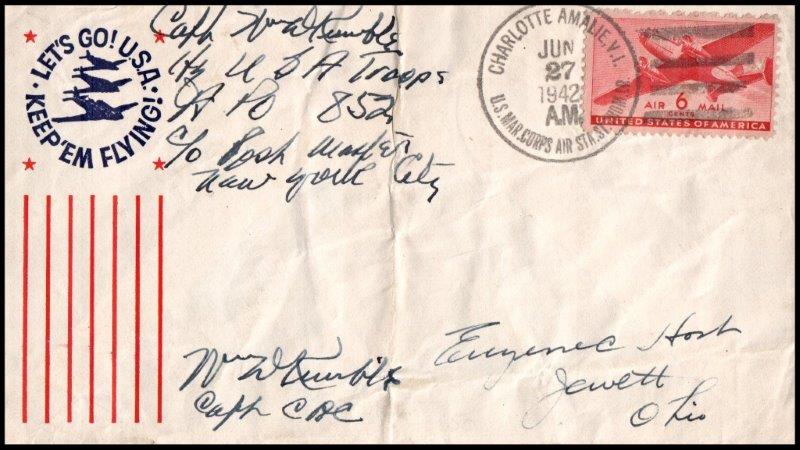 LET'S GO! U.S.A.
KEEP 'EM FLYING!
Capt Wm D Kimble
Hq U S A Troops
A P O 852
c/o Post Master
New York City
CHARLOTTE AMALIE, V.I.
JUN
27
1942
A.M.
U.S. MAR. CORPS AIR STA. ST. THOMAS
AIR 6 MAIL
CENTS
UNITED STATES OF AMERICA
Wm D Kimble
Capt CAC
Eugene Host
Jewett
Ohio